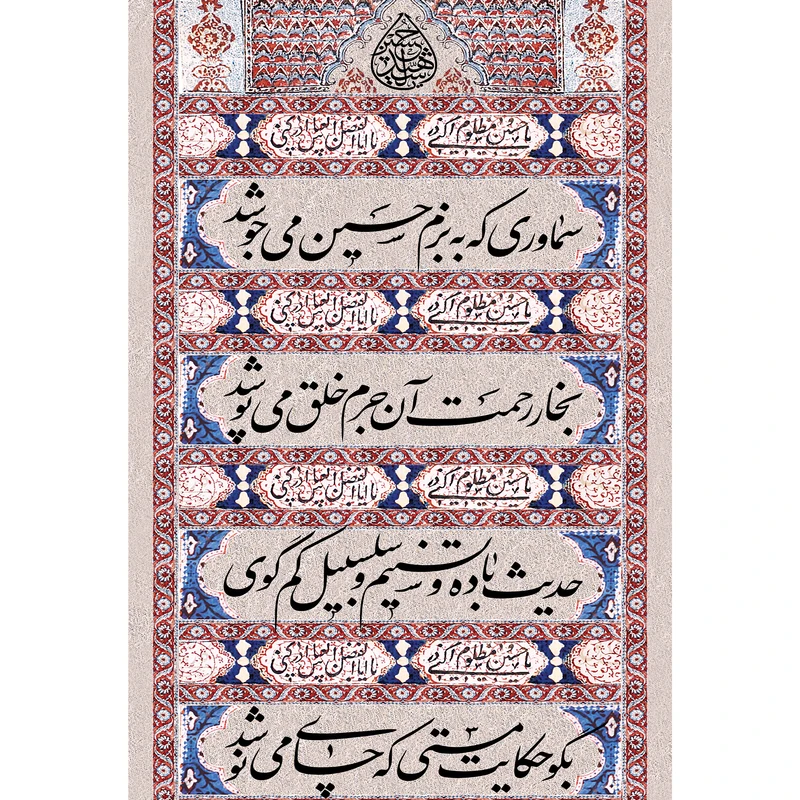 حسین شهید
یا حسین مظلوم ادرکنی یا اباالفضل العباس ادرکنی
سماوری که به بزم حسین می جوشد
یا حسین مظلوم ادرکنی یا اباالفضل العباس ادرکنی
بخار رحمت آن جرم خلق می پوشد
یا حسین مظلوم ادرکنی یا اباالفضل العباس ادرکنی
حدیث باده و تسنیم و سلسبیل کم گوی
یا حسین مظلوم ادرکنی یا اباالفضل العباس ادرکنی
بگو حکایت مستی که چای می نوشد